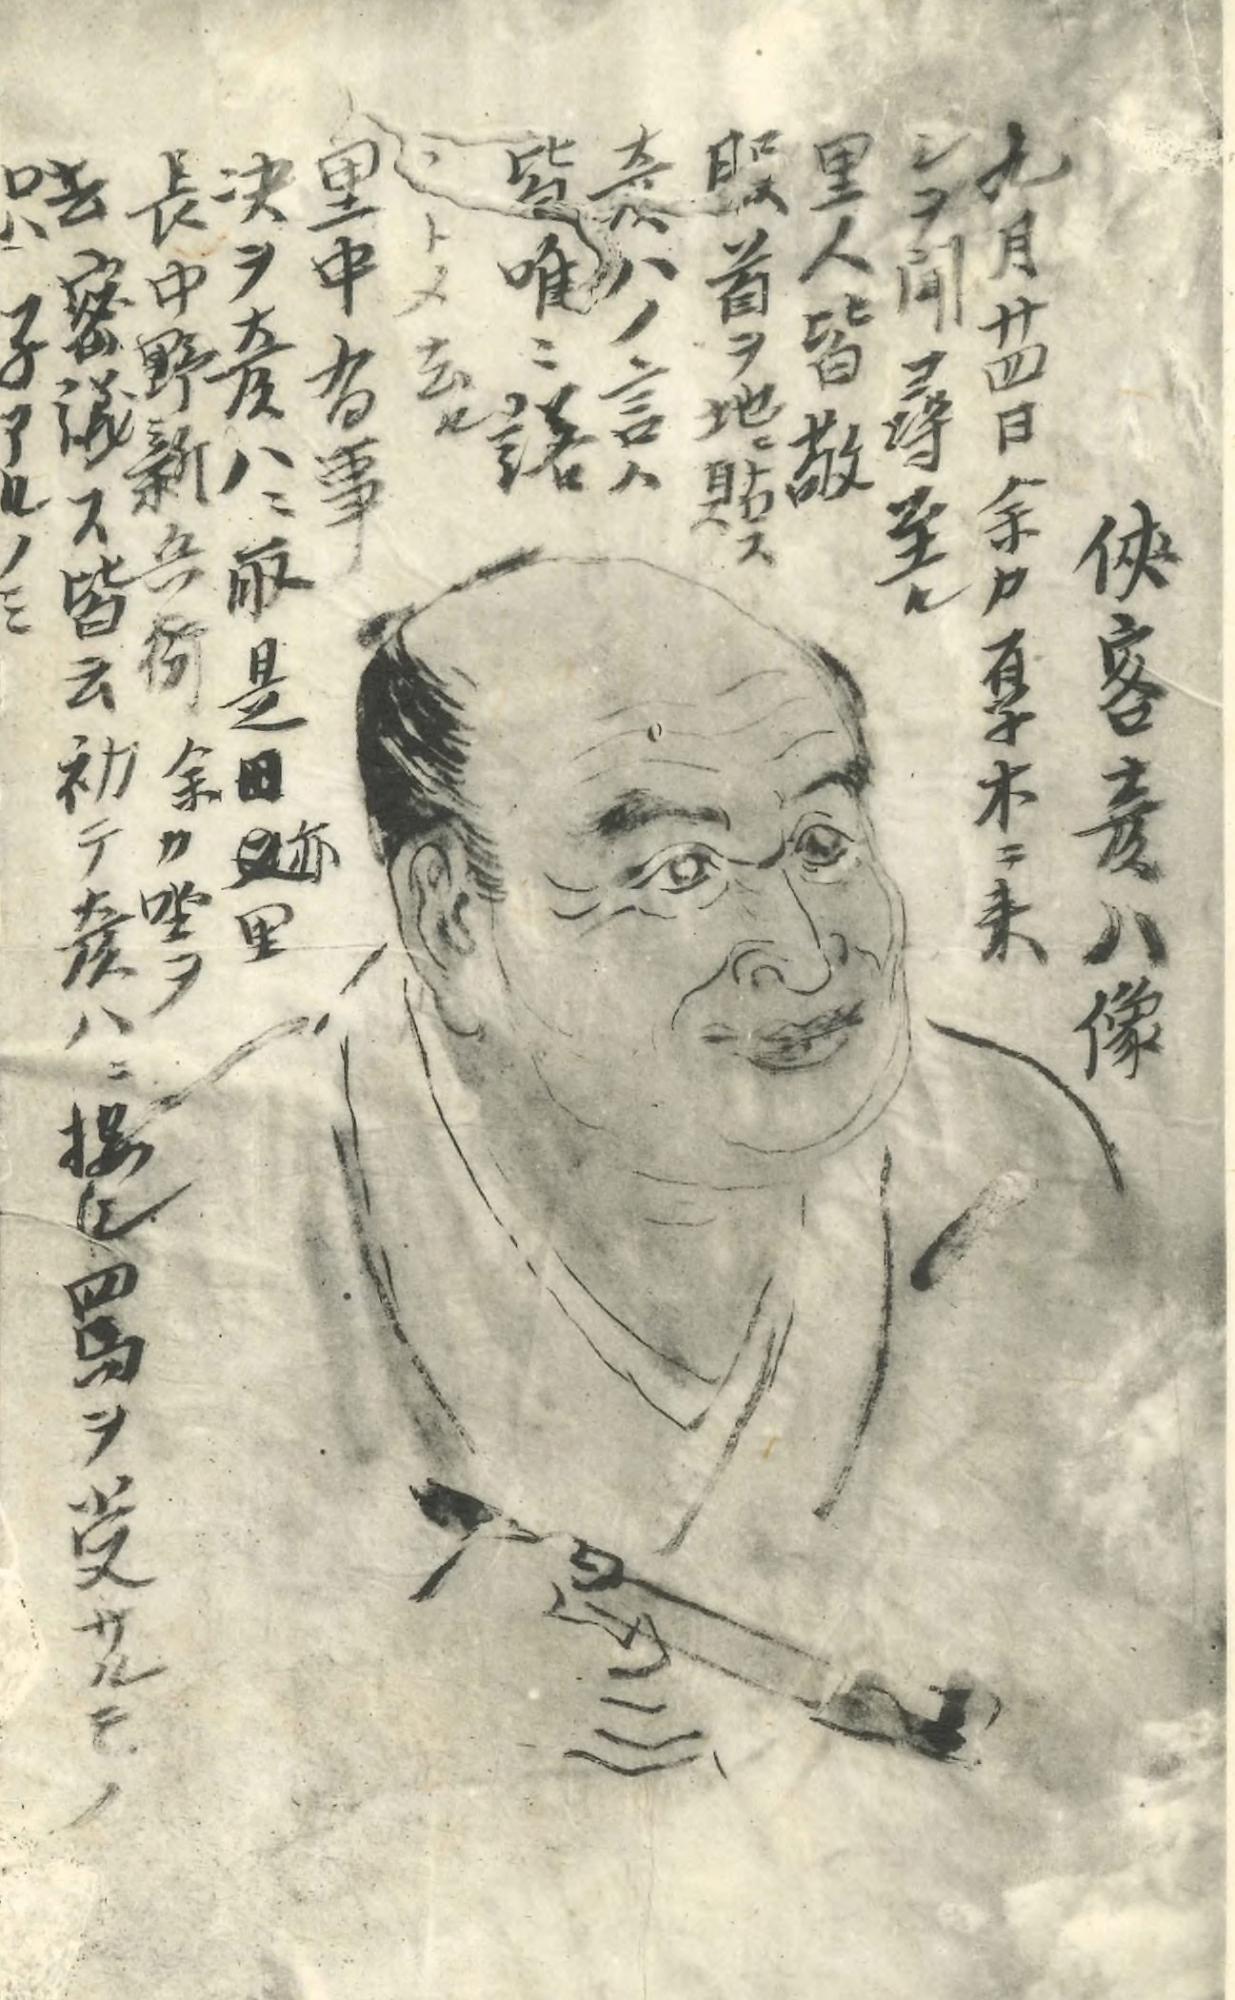 侠客彦八像
九月廿四日余カ厚木ニ来
シヲ聞尋至ル
里人皆敬
服首ヲ地ニ貼ス
彦八ノ言ハ
皆唯ニ諾
トメ去ル
里中有事
决ヲ彦八ニ取是田跡里
長中野新兵衛余カ坐ヲ
去密議ス皆云初テ彦八ニ接シ罵ヲ受サルモノ
只 子アルノミ